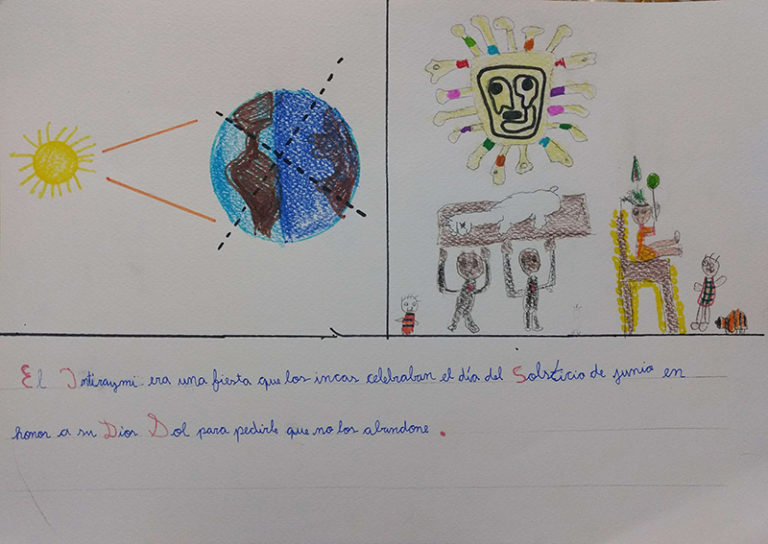 El Intiraymi era una fiesta que los incas celebraban el día del Solsticio de junio en
honor a su Dios Sol para pedirle que no los abandone.